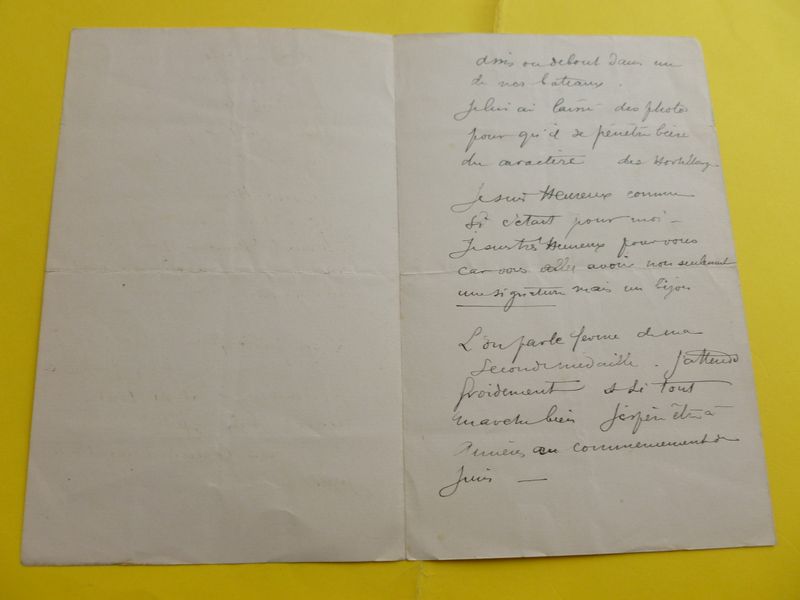 assis ou debout dans un
de nos bateaux.
Je lui ai laissé des photos
pour qu'il se pénètre bien
du caractère des
Je suis Heureux comme
si c'était pour moi -
Je suis très Heureux pour vous
car vous allez avoir non seulement
une signature mais un bijou
L'on parle ferme de ma
seconde médaille. J'attends
froidement & si tout
marche bien J'espère être à
Asnières au commencement de
Juin —